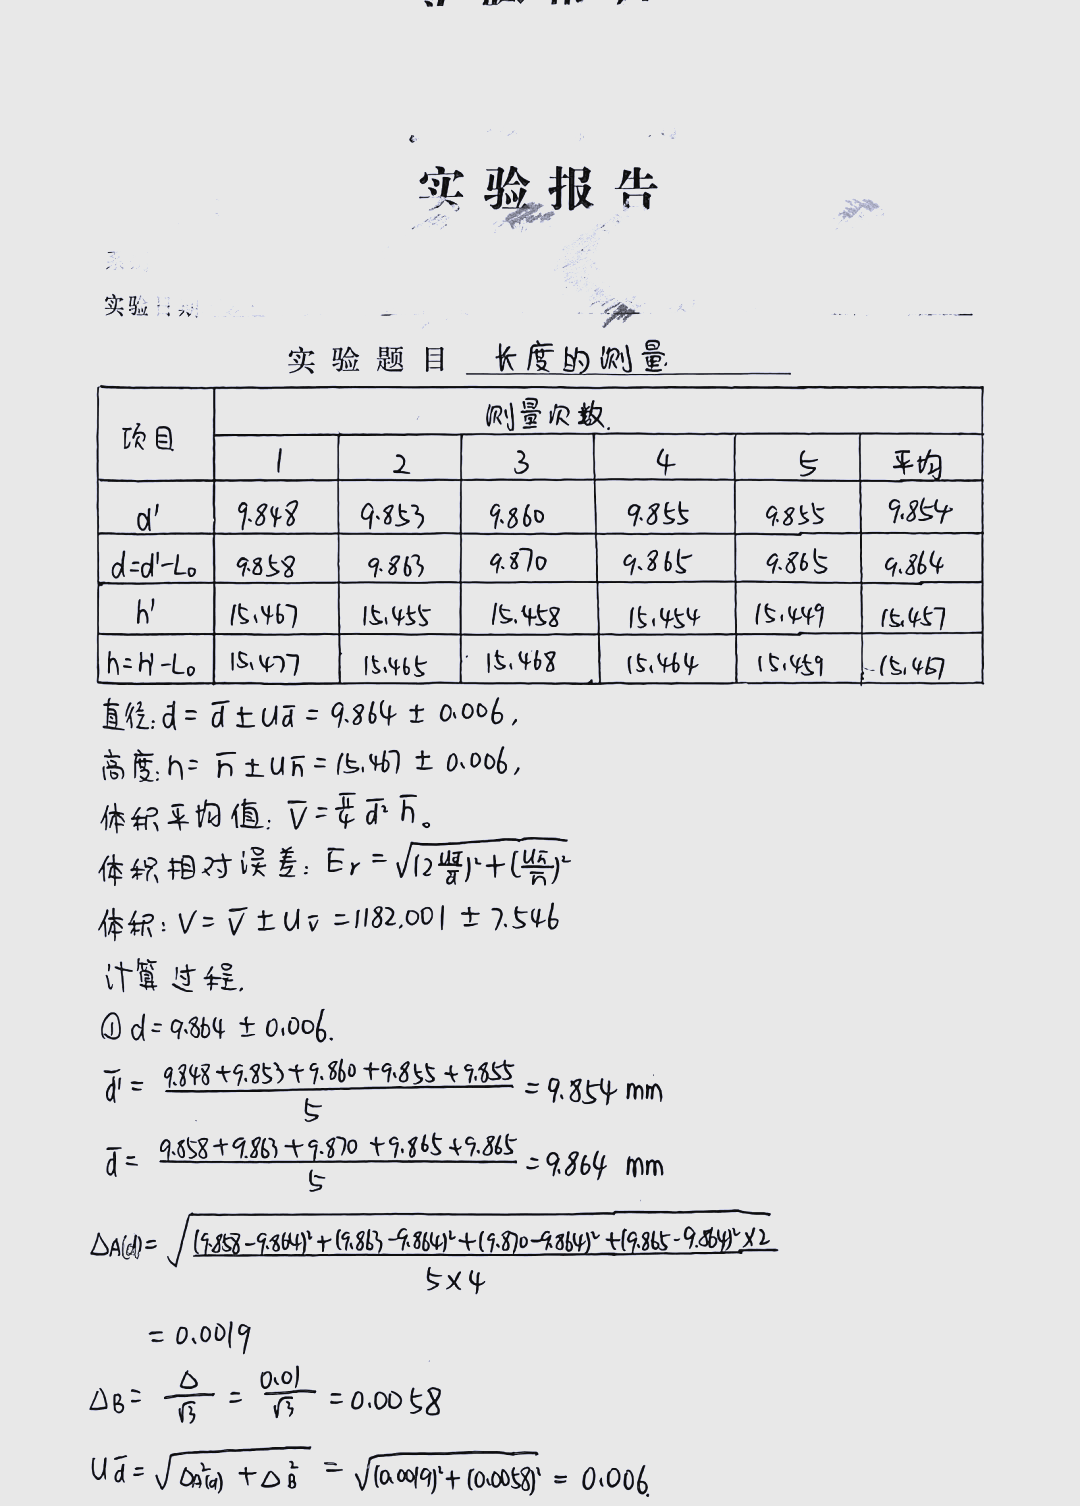 实验报告
实验日期
实验题目 长度的测量
项目 测量次数
1 2 3 4 5 平均
d' 9.848 9.853 9.860 9.855 9.855 9.854
d=d'-L₀ 9.858 9.863 9.870 9.865 9.865 9.864
h' 15.467 15.455 15.458 15.454 15.449 15.457
h=h'-L₀ 15.477 15.465 15.468 15.464 15.459 15.467
直径:d=d̅±Ud̅=9.864±0.006,
高度:h=h̅±Uh̅=15.467±0.006,
体积平均值:V̅=π/4 d̅²h̅。
体积相对误差:Er=√((2Ud̅/d̅)²+(Uh̅/h̅)²
体积:V=V̅±Uv̅=1182.001±7.546
计算过程.
①d=9.864±0.006.
d̅'=(9.848+9.853+9.860+9.855+9.855)/5=9.854mm
d̅=(9.858+9.863+9.870+9.865+9.865)/5=9.864mm
ΔA(d)=√((9.858-9.864)²+(9.863-9.864)²+(9.870-9.864)²+(9.865-9.864)²×2)/(5×4)
=0.0019
ΔB=Δ/√3=0.01/√3=0.0058
Ud̅=√(ΔA²(d)+ΔB²)=√((0.0019)²+(0.0058)²)=0.006.